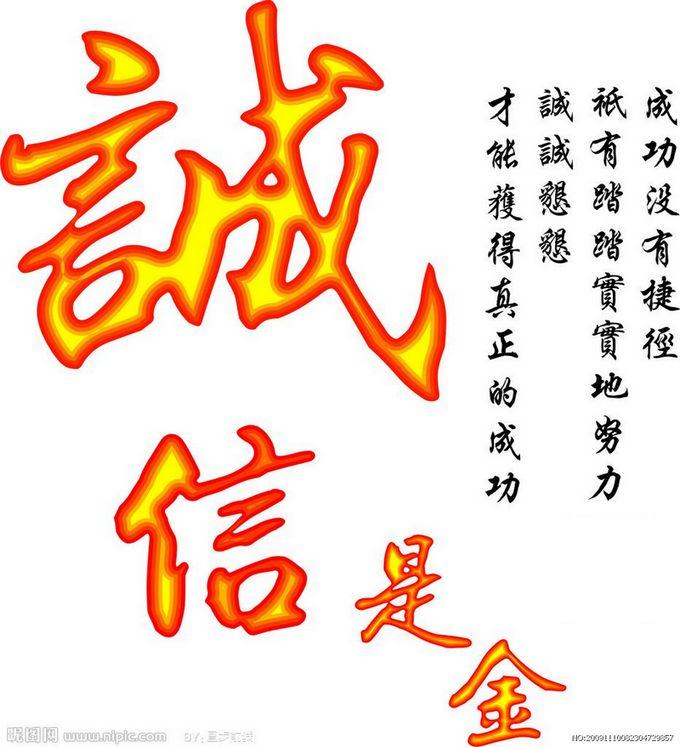 誠
信
是
金
成功没有捷徑
衹有踏踏實實地努力
誠誠懇懇
才能獲得真正的成功
昵图网 www.nipic.com
BY:
NO:20091110082304729857